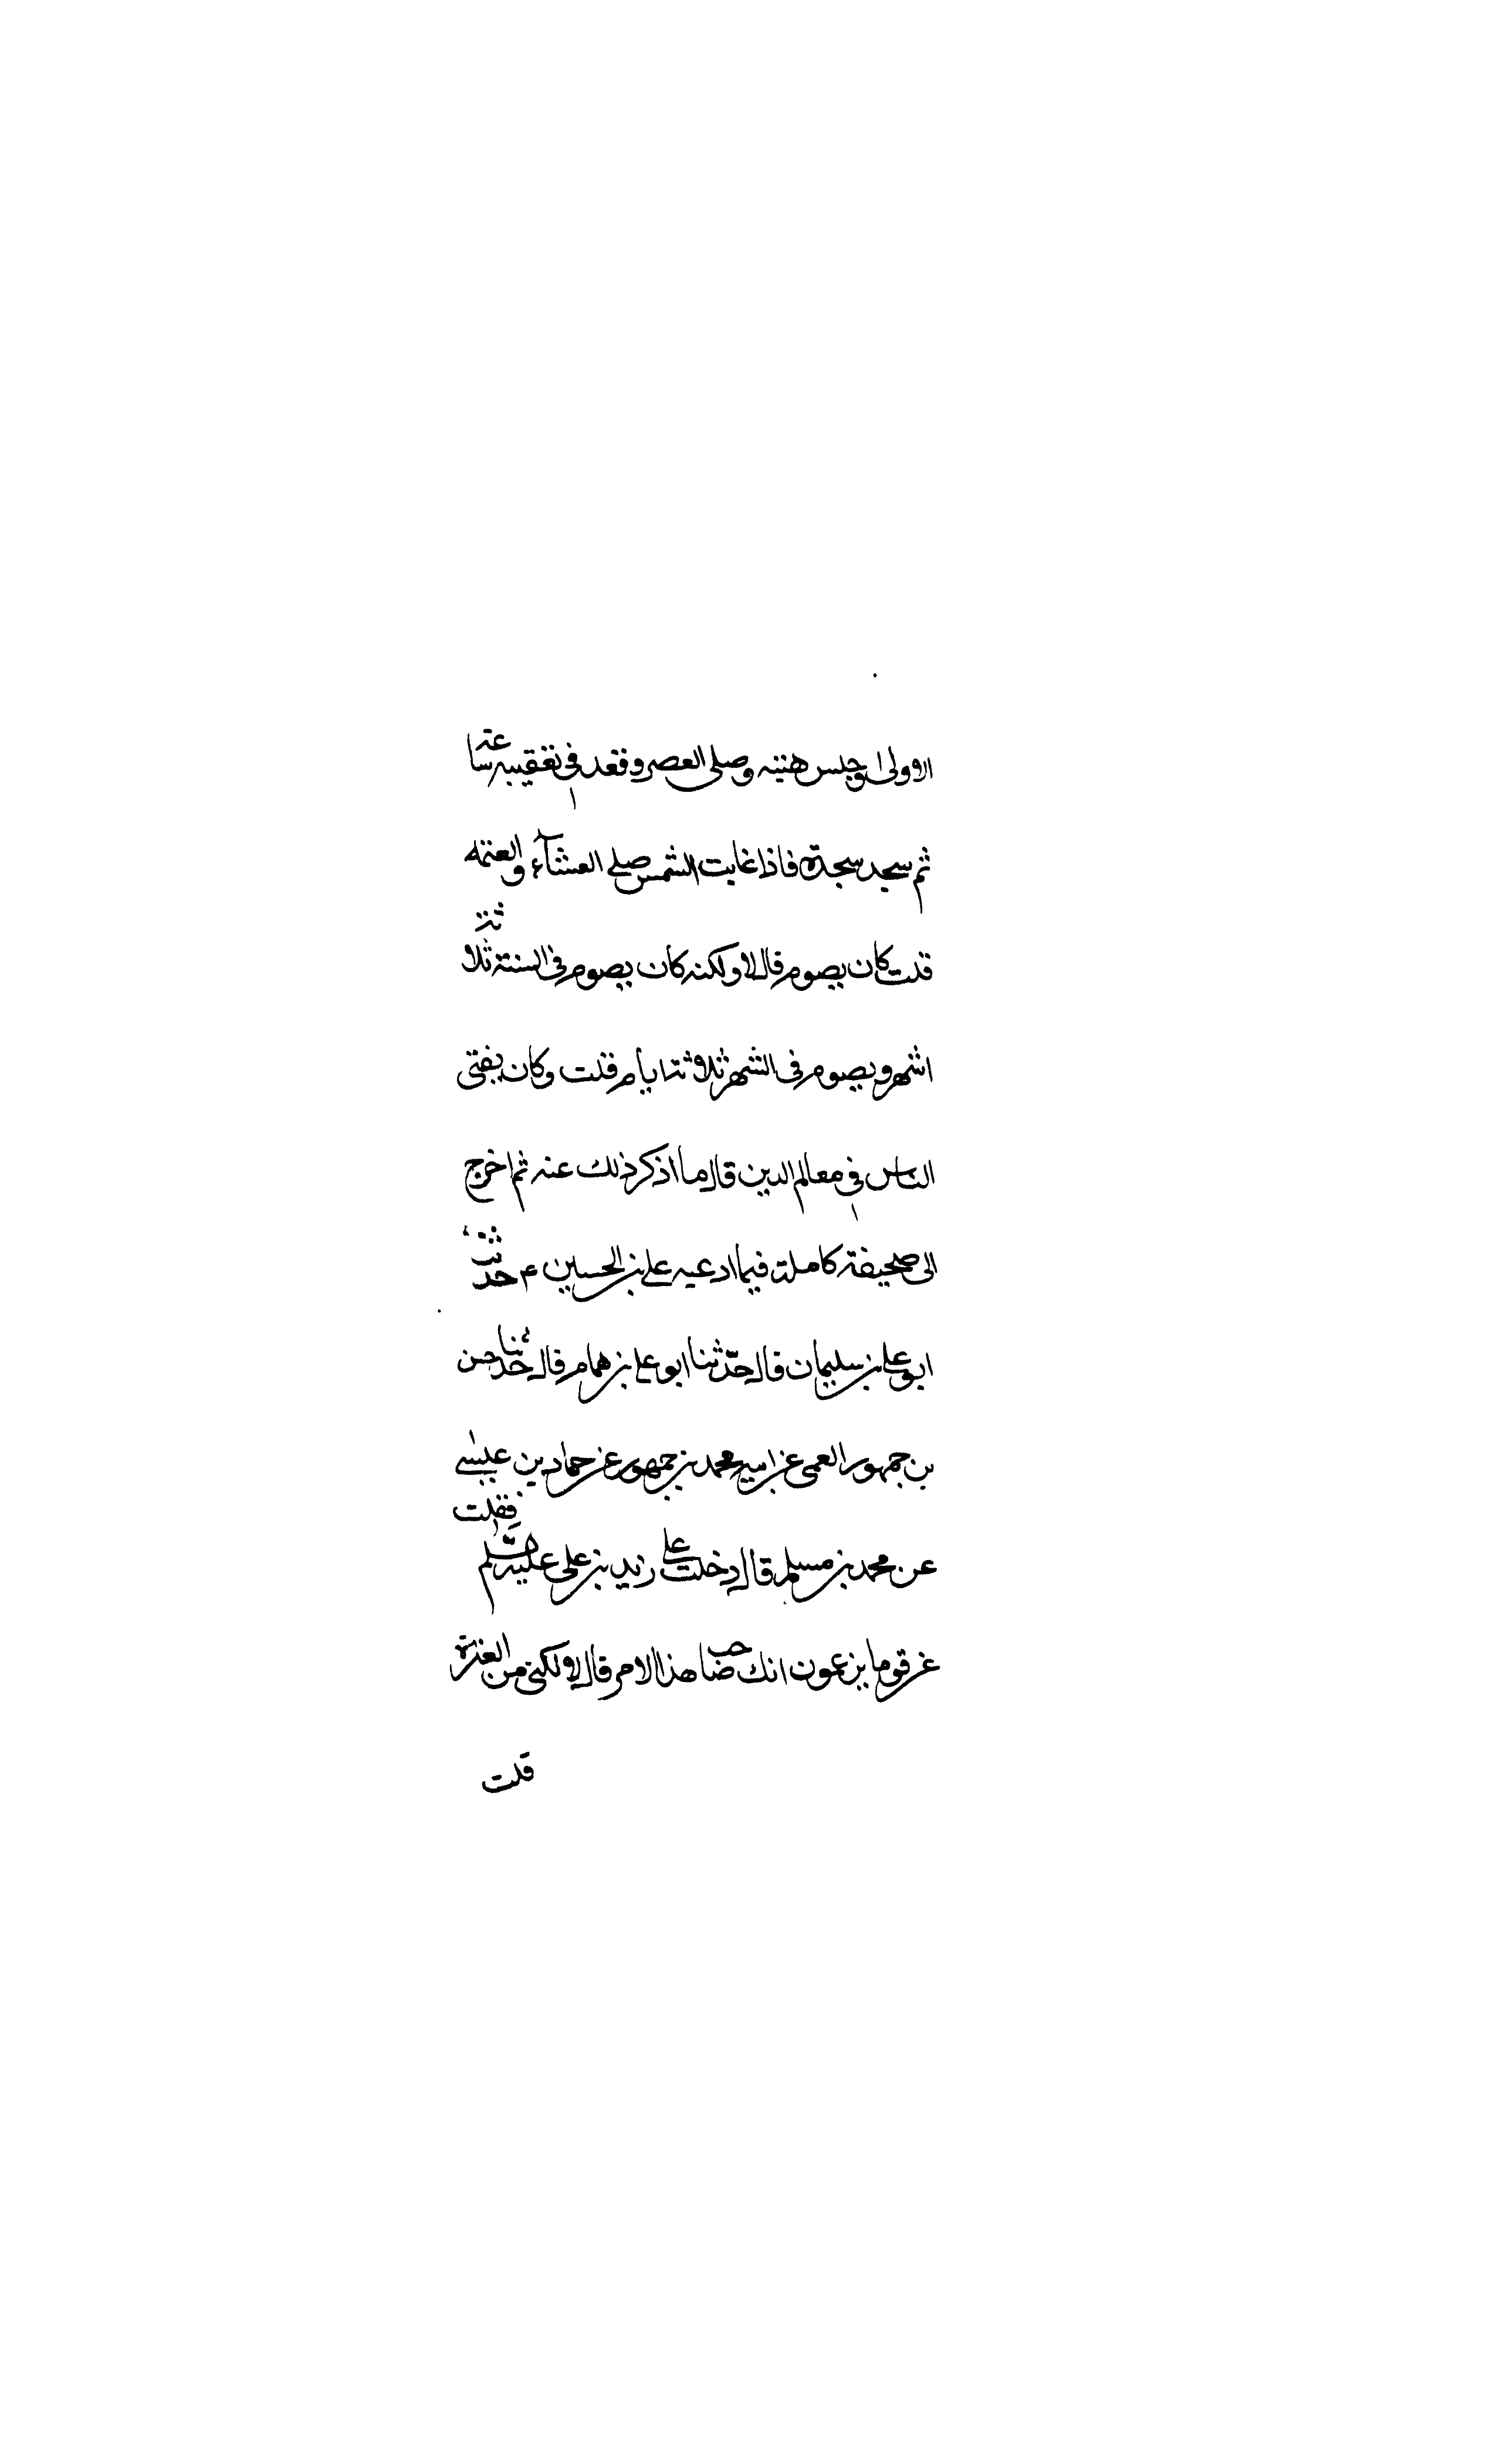 الاولى وجلس هنيئه وصلى العصر وقعد في تعقيبه ساعة
ثم سجد سجدة فاذا غابت الشمس صلى العشآء والعتمه
قلت كان يصوم قال لا ولكنه كان يصوم في السنة ثلاثة
اشهر ويصوم في الشهر ثلاثة ايام قلت وكان يفتى
الناس في معالم الدين قال ما اذكر ذلك عنه ثم اخرج
الى صحيفة كاملة فيها ادعيه على بن الحسين ع حدثنا
ابو على بن سليمان قال حدّثنا ابو على بن همام قال حدثنا حسن
بن جمهور العمى عن ابيه محمد بن جمهور عن حماد بن عيسى
عن محمد بن مسلم قال دخلت على زيد بن على عليه السلم فقلت
عن قوما يزعمون انك صاحب هذا الامر قال لا ولكنى من العترة
قلت